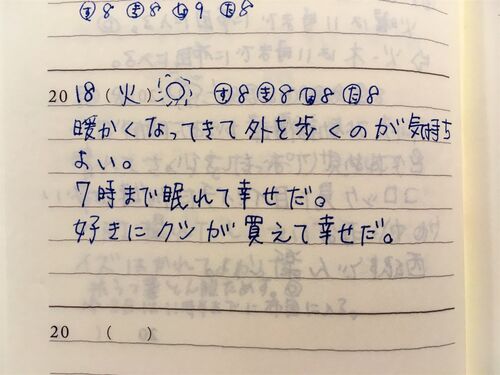 ㋔8 ㋖8 ㋛9 ㋟8
2018(火) ㋔8 ㋖8 ㋛8 ㋟8
暖かくなってきて外を歩くのが気持ち
よい。
7時まで眠れて幸せだ。
好きにクツが買えて幸せだ。
20 ( )